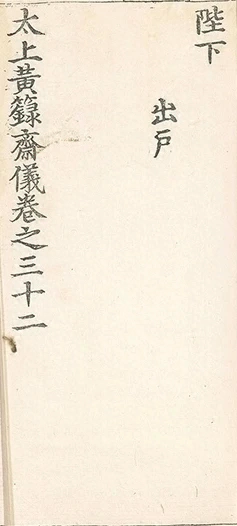 陛下
出戶
太上黃籙齋儀卷之三十二